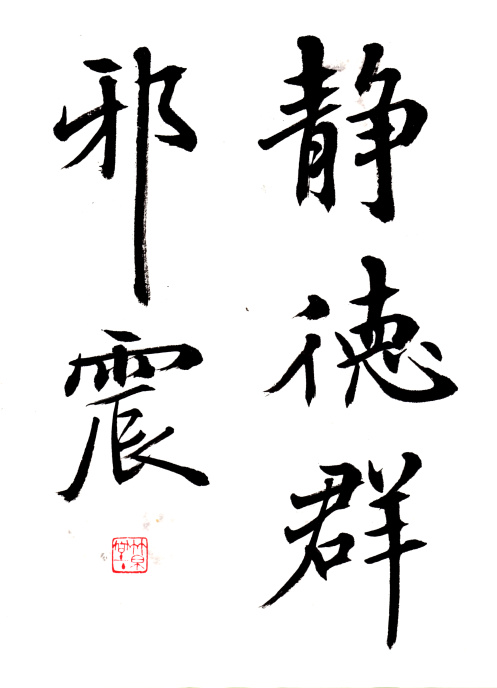 静徳群
邪震